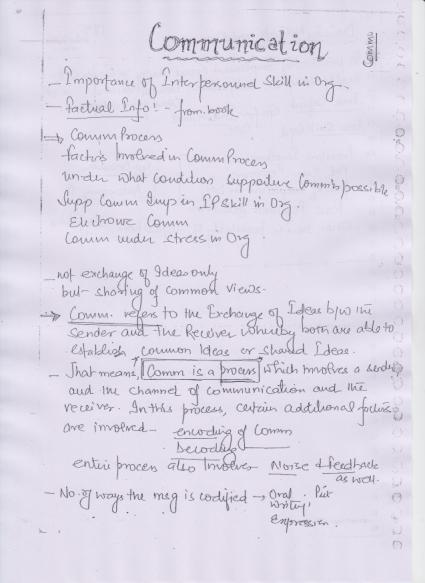 Communication
Commu
– Importance of Interpersonnel Skill in Org.
– Factual Info! – from book
→ Comm Process
factors Involved in Comm Process
under what condition supportive Comm is possible
Supp Comm Imp in IP Skill in Org.
Electronic Comm
Comm under stress in Org.
– not exchange of Ideas only
but – sharing of common views.
→ Comm. refers to the Exchange of Ideas b/w the
Sender and the Receiver whereby both are able to
establish common Ideas or shared Ideas.
– That means, Comm is a process which involves a sender
and the channel of communication and the
receiver. In this process, certain additional factors
are involved – encoding of Comm
Decoding
entire process also Involves Noise & feedback
as well.
– No. of ways the msg is codified → Oral. Pict
writing,
Expression.